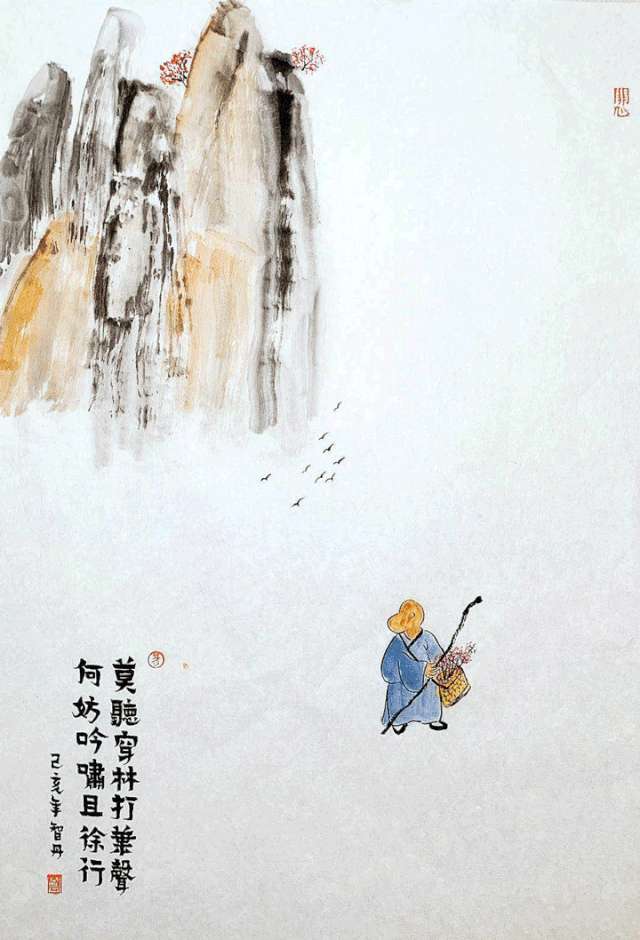 莫聽穿林打葉聲
何妨吟嘯且徐行
己亥年智丹